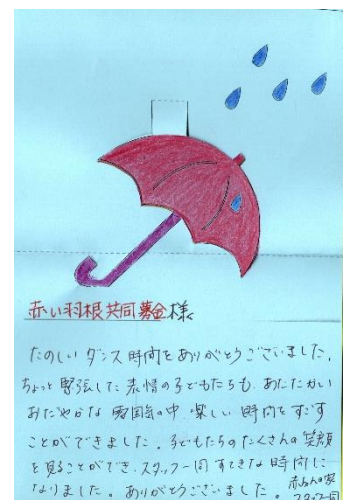 赤い羽根共同募金様
たのしいダンス時間をありがとうございました。
ちょっと緊張した表情の子どもたちも、あたたかい
おだやかな雰囲気の中、楽しい時間をすごす
ことができました。子どもたちのたくさんの笑顔
を見ることができ、スタッフ一同すてきな時間に
なりました。ありがとうございました。
スタッフ一同